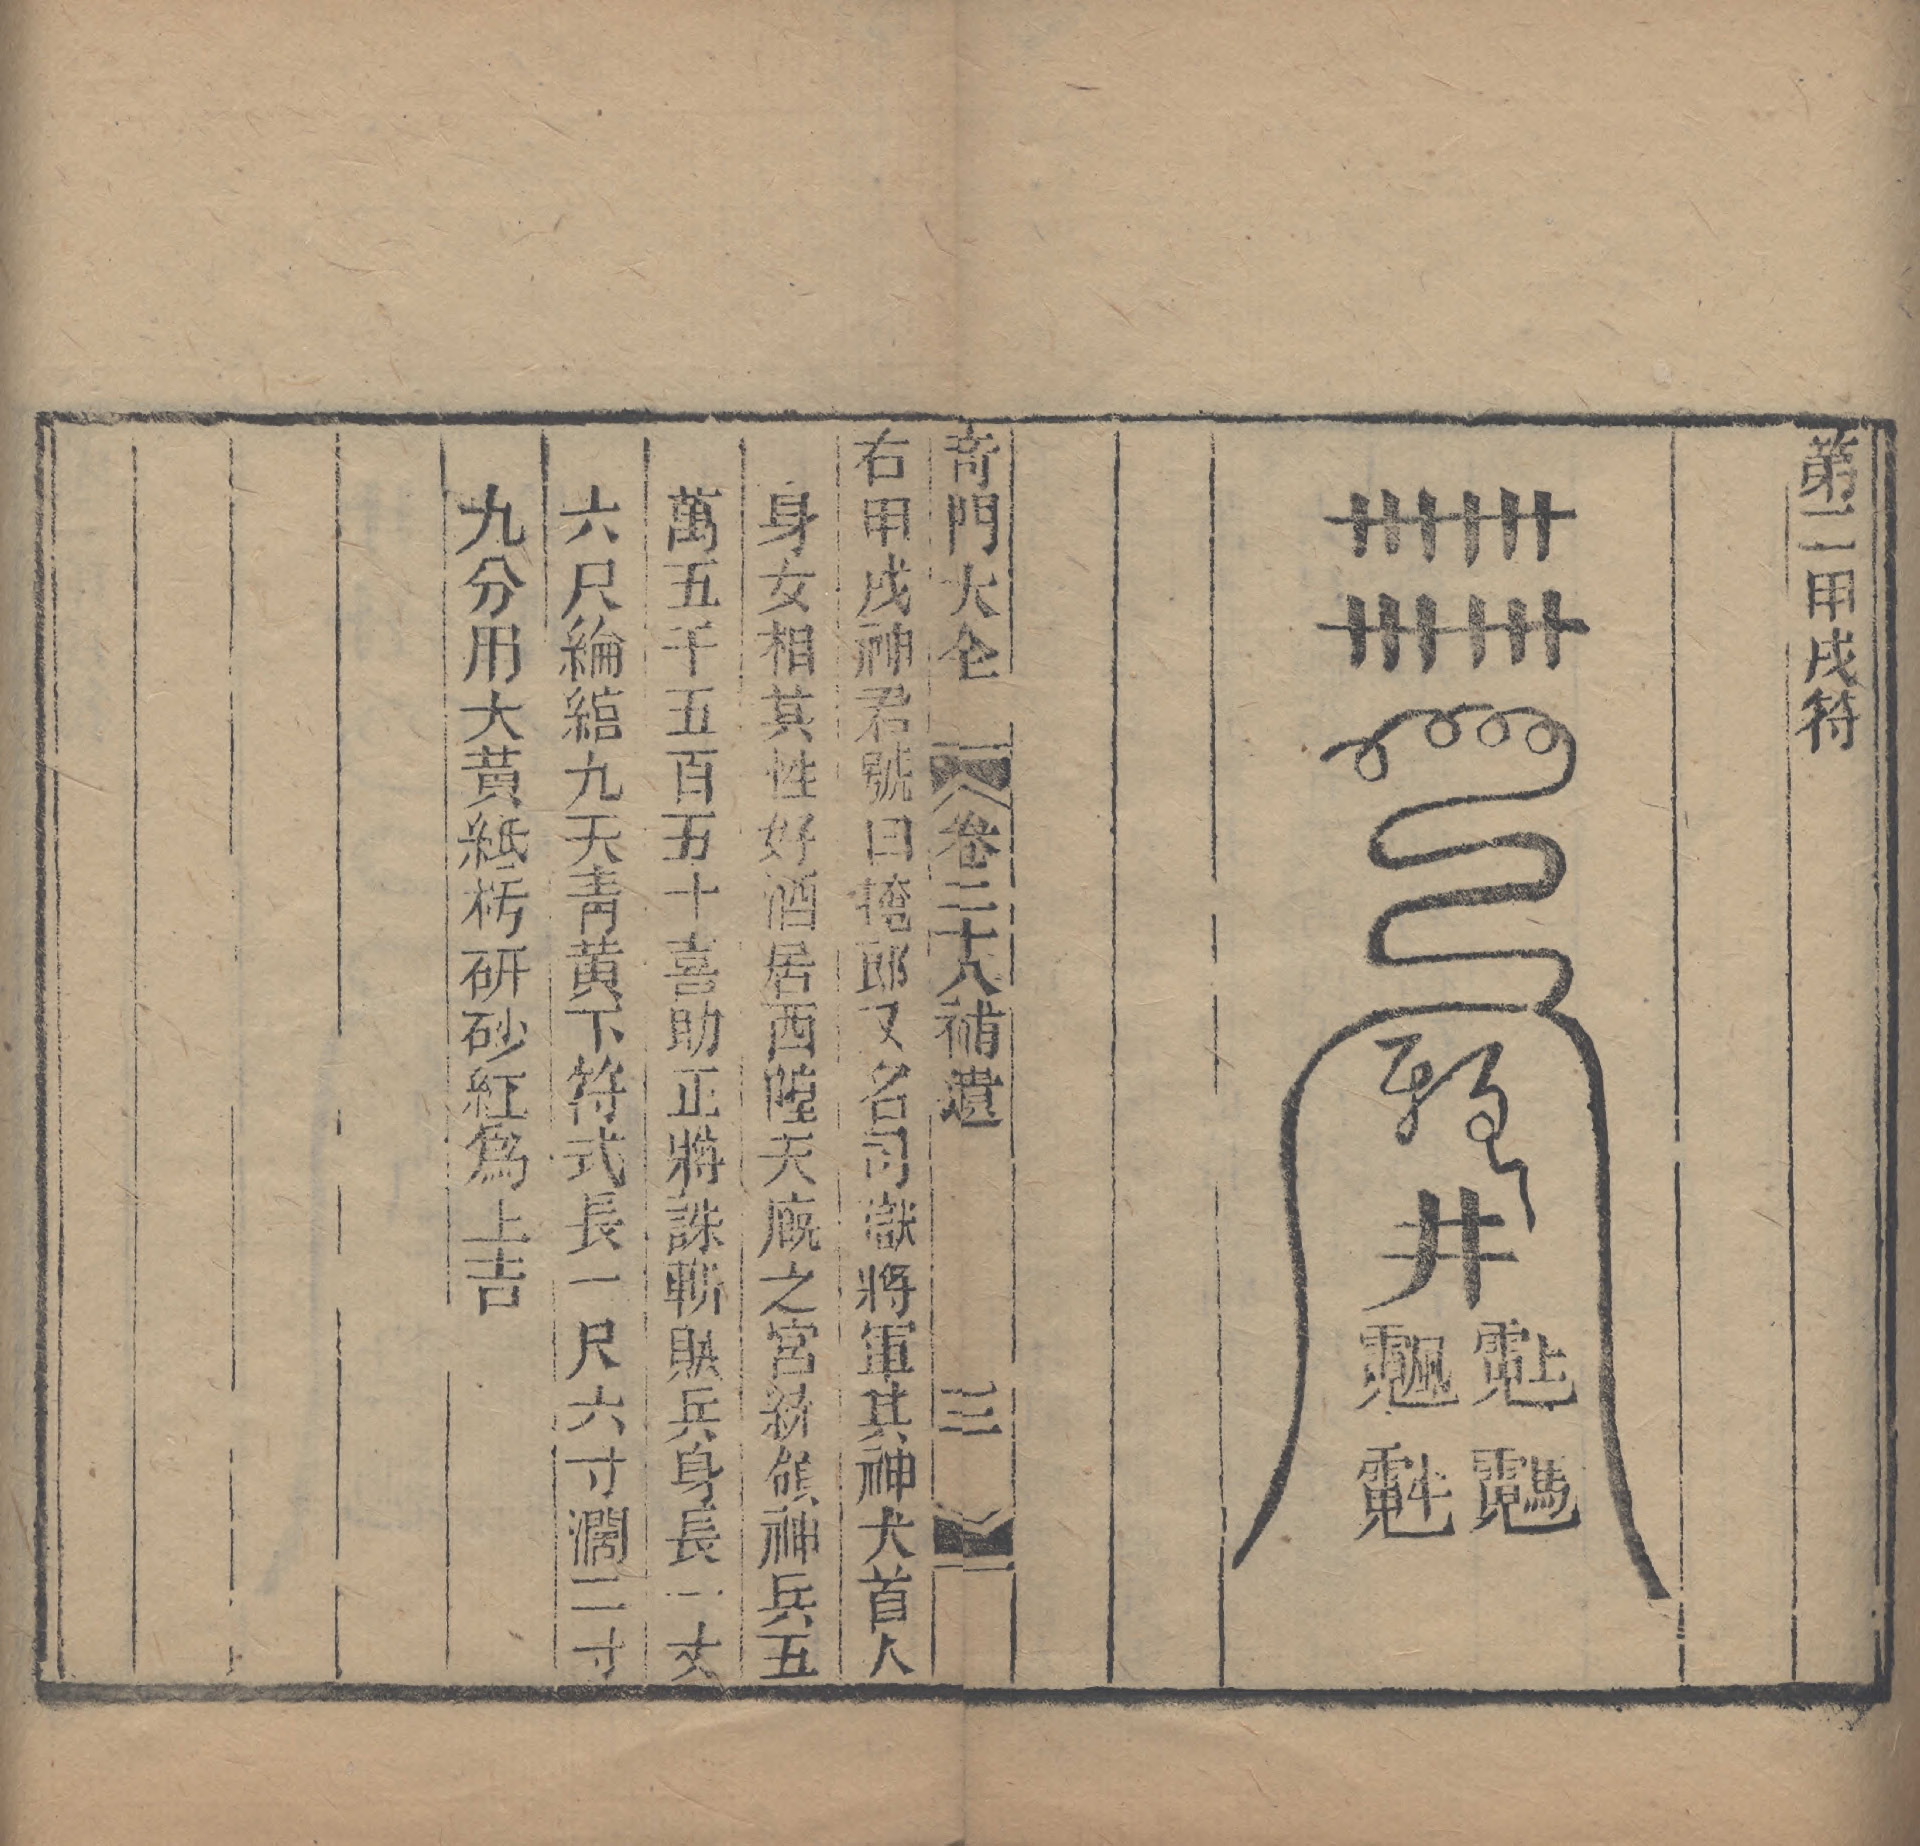 第二甲戌符
井
奇門大仝 卷二十八補遺 三
右甲戌神君號曰掩邸又名司獄將軍其神犬首人
身女相其性好酒居西陸天廐之宮統領神兵五
萬五千五百五十喜助正將誅斬賊兵身長一丈
六尺綸綰九天青黃下符式長一尺六寸濶二寸
九分用大黃紙朽研砂紅爲上吉